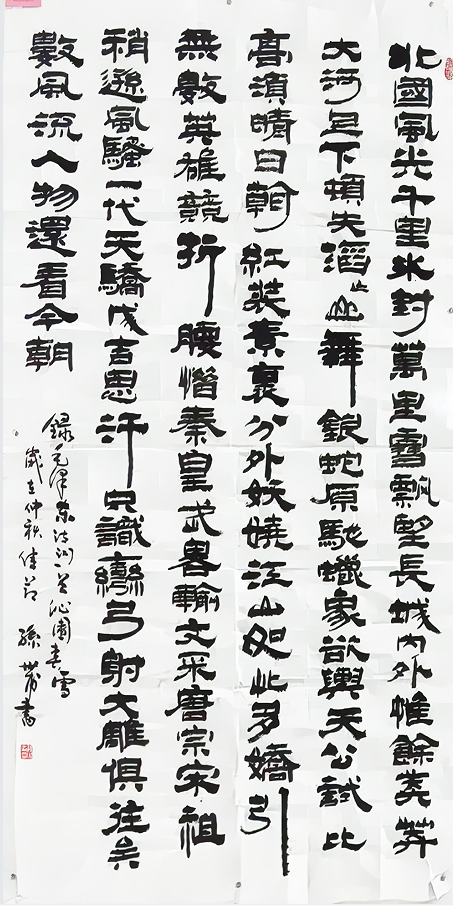 北國風光千里氷封萬里雪飄望長城内外惟餘莽莽
大河上下頓失滔〻山舞銀蛇原馳蠟象欲與天公試比
高須晴日看紅裝素裹分外妖嬈江山如此多嬌引
無數英雄競折腰惜秦皇武畧輸文采唐宗宋祖
稍遜風騷一代天驕成吉思汗只識彎弓射大雕俱往矣
數風流人物還看今朝
錄毛澤東詩詞一首沁園春雪
歲在仲秋佳節 孫 書